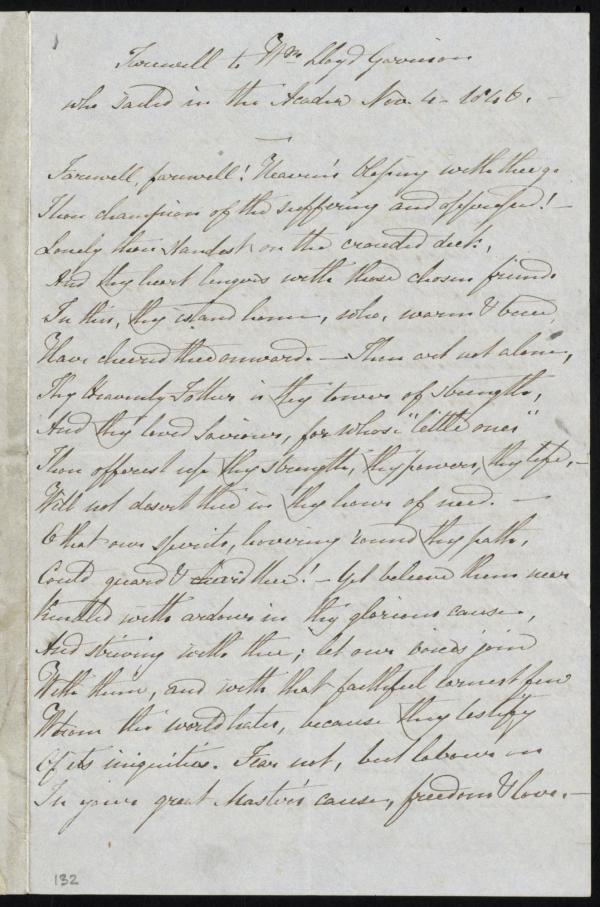 Farewell to Wm Lloyd Garrison
who sailed in the Acadia Nov. 4 - 1846. -
Farewell, farewell! Heaven's blessing with thee go
Thou champion of the suffering and oppressed! -
Lonely thou standest on the crowded deck,
And thy heart lingers with those chosen friends
In this, thy island home, who, warm & true,
Have cheered thee onward. - Thou art not alone,
Thy Heavenly Father is thy tower of strength,
And thy loved Saviour, for whose "little ones"
Thou offerest up thy strength, thy powers, thy life, -
Will not desert thee in thy hour of need. -
O that our spirits, hovering 'round thy path,
Could guard & thee! - Yet believe them near
Kindled with ardour in thy glorious cause,
And striving with thee; let our voices join
With thine, and with that faithful earnest few
Whom the world hates, because they testify
Of its iniquities. Fear not, but labour on
In your great Master's cause, freedom & love. -
132